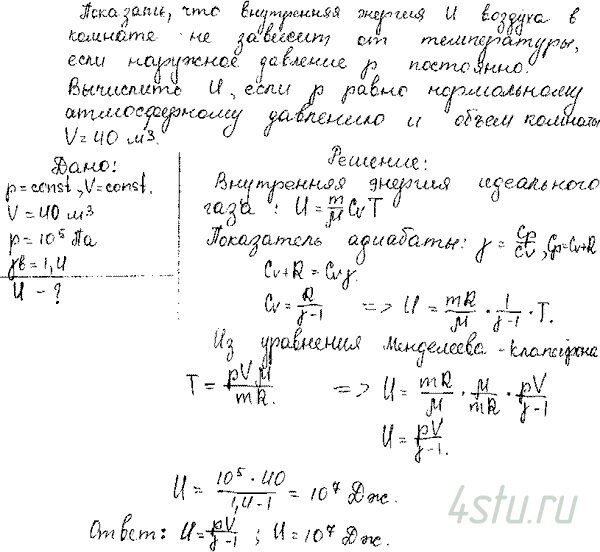 Показать, что внутренняя энергия U воздуха в
комнате не зависит от температуры,
если наружное давление p постоянно.
Вычислить U, если p равно нормальному
атмосферному давлению и объем комнаты
V=40 м³.
Дано:
p=const, V=const.
V=40 м³
p=10⁵ Па
γв=1,4
U - ?
Решение:
Внутренняя энергия идеального
газа: U = m/M CvT
Показатель адиабаты: γ = Cp/Cv, Cp=Cv+R
Cv+R = Cvγ.
Cv = R/γ-1 => U = mR/M · 1/γ-1 · T.
Из уравнения Менделеева-Клапейрона
T = pVM/mR. => U = mR/M · M/mR · pV/γ-1
U = pV/γ-1.
U = 10⁵·40/1,4-1 = 10⁷ Дж.
Ответ: U = pV/γ-1 ; U=10⁷ Дж.
4stu.ru